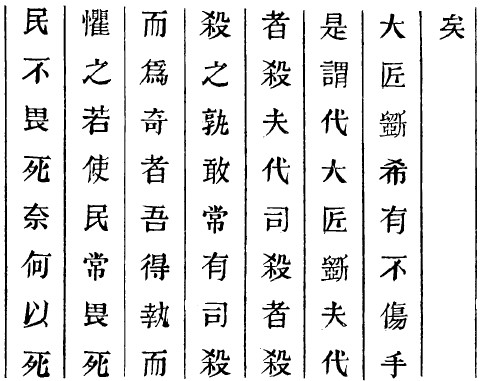 民不畏死奈何以死
懼之若使民常畏死
而爲奇者吾得執而
殺之孰敢常有司殺
者殺夫代司殺者殺
是謂代大匠斵夫代
大匠斵希有不傷手
矣